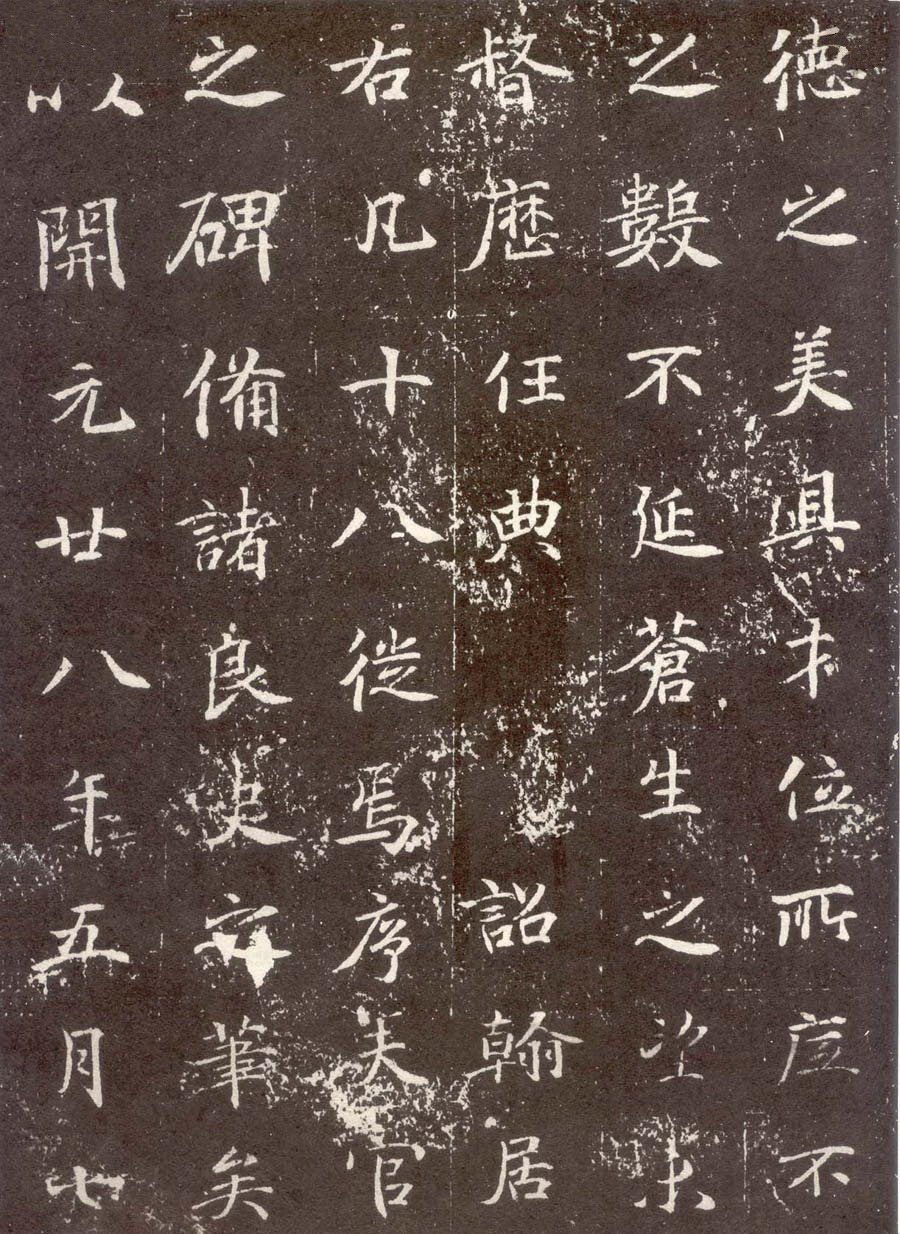 德之美具才位所不
之數不延蒼生之望未
督歷任典詔翰居
右凡十八徙焉序夫官
之碑備諸良史筆矣
以開元廿八年五月七